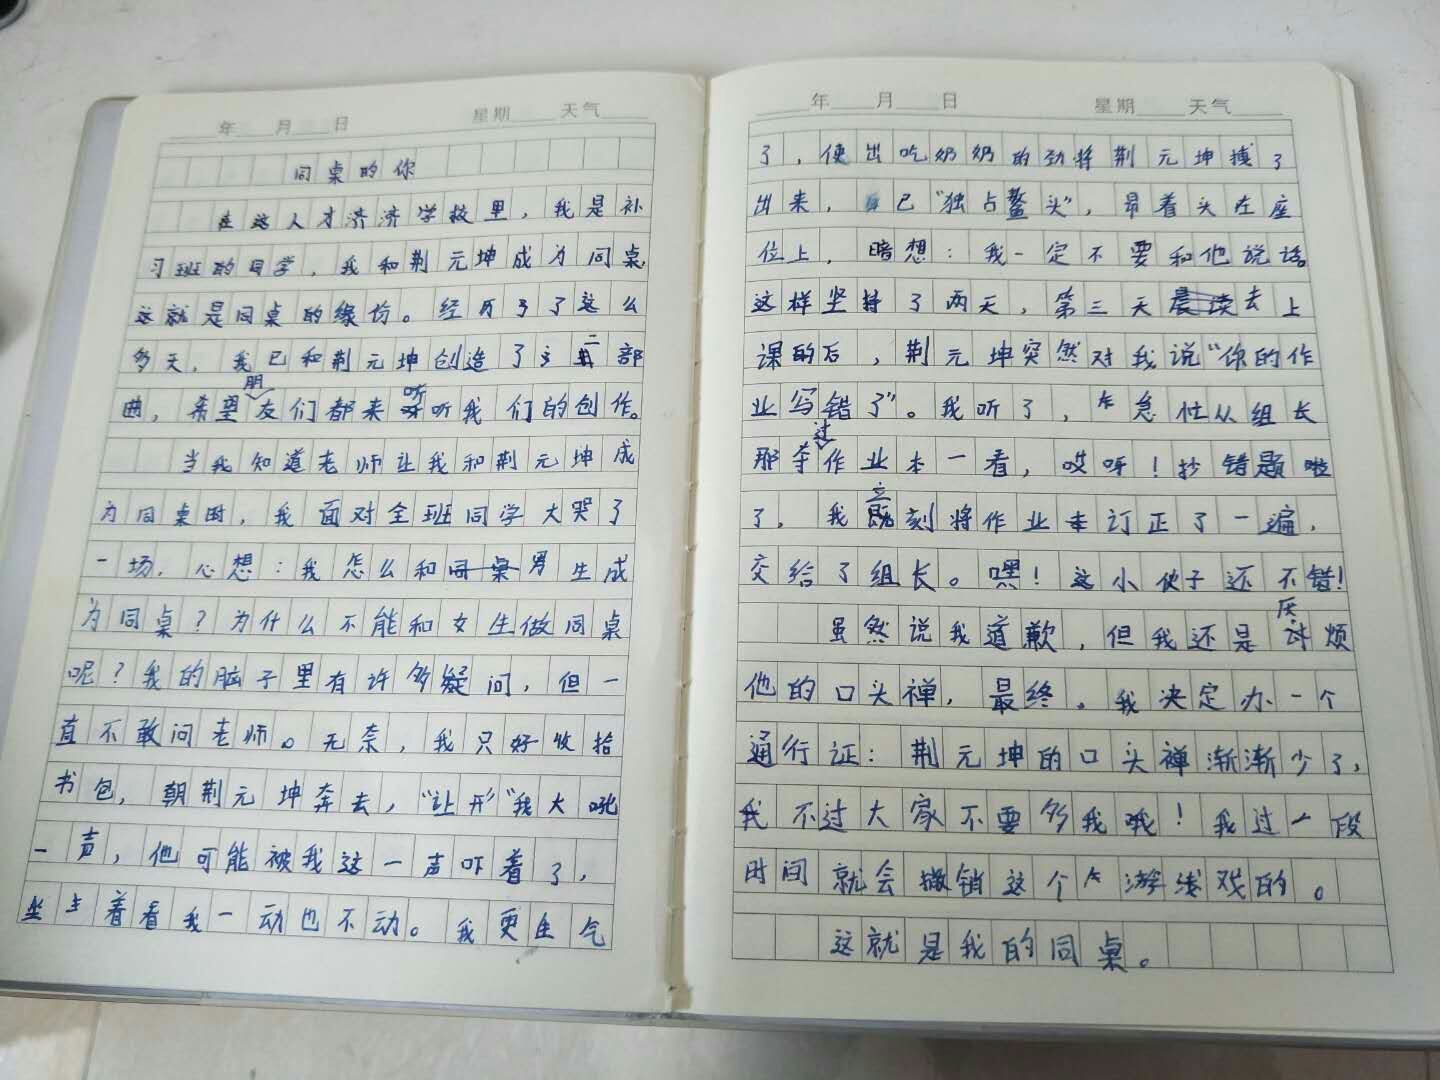 年 月 日 星期 天气
同桌的你
在这人才济济学校里，我是补
习班的同学，我和荆元坤成为同桌，
这就是同桌的缘份。经历了这么
多天，我已和荆元坤创造了二部
曲，希望朋友们都来听听我们的创作。
当我知道老师让我和荆元坤成
为同桌时，我面对全班同学大哭了
一场，心想：我怎么和男生成
为同桌？为什么不能和女生做同桌
呢？我的脑子里有许多疑问，但一
直不敢问老师。无奈，我只好收拾
书包，朝荆元坤奔去，“让形”我大吼
一声，他可能被我这一声吓着了，
坐着看我一动也不动。我更生气
年 月 日 星期 天气
了，使出吃奶奶的劲将荆元坤拽了
出来，已“独占鳌头”，昂着头在座
位上，暗想：我一定不要和他说话。
这样坚持了两天，第三天去上
课的后，荆元坤突然对我说“你的作
业写错了”。我听了，急忙从组长
那夺过作业本一看，哎呀！抄错题啦
了，我立刻将作业本订正了一遍，
交给了组长。嘿！这小伙子还不错！
虽然说我道歉，但我还是厌烦
他的口头禅，最终。我决定办一个
通行证：荆元坤的口头禅渐渐少了，
我不过大家不要多我哦！我过一段
时间就会撤销这个游戏的。
这就是我的同桌。